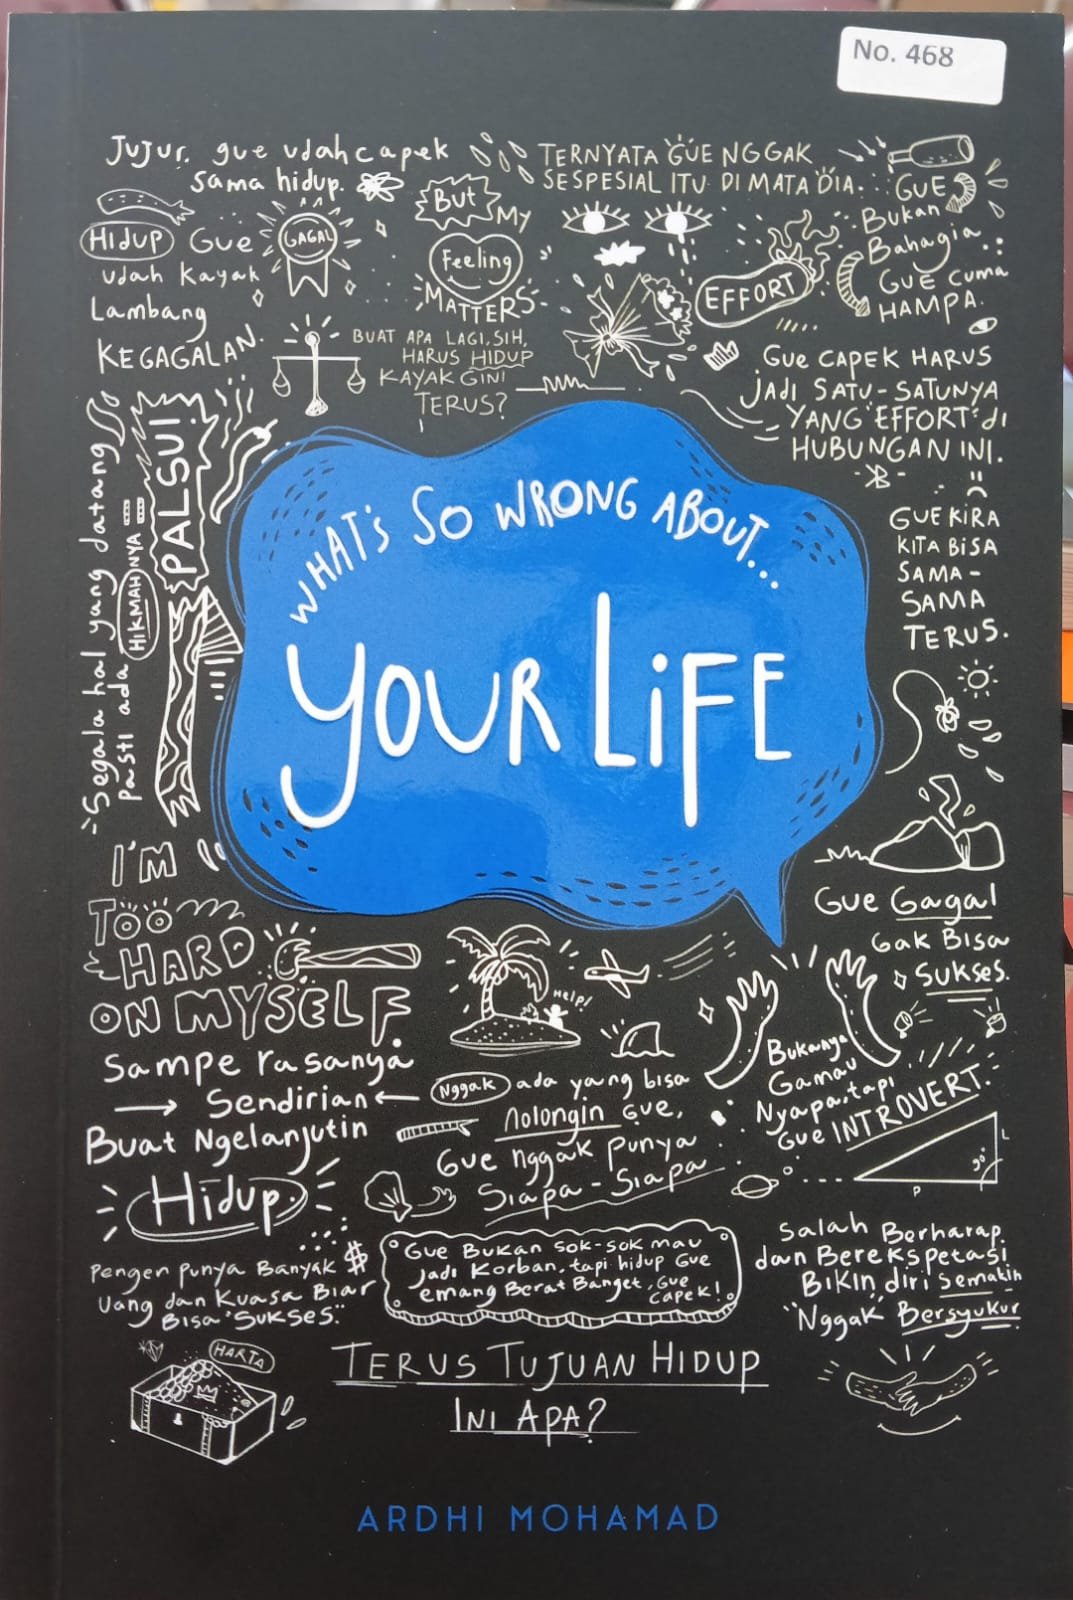 No. 468
Jujur. gue udah capek
sama hidup.
But
My
Feeling
MATTERS
TERNYATA GUE NGGAK
SESPESIAL ITU DI MATA DIA.
GUE
Bukan
Bahagia
GUE cuma
HAMPA.
HiDUP Gue
udah Kayak
Lambang
KEGAGALAN.
GAGAL
EFFORT
BUAT APA LAGI, SIH,
HARUS HIDUP
KAYAK GINI
TERUS?
GUE CAPEK HARUS
JADi SATU-SATUNYA
YANG "EFFORT" di
HUBUNGAN INI.
Segala hal yang datang
pasti ada HIKMAHNYA
PALSU!
WHAT'S SO WRONG ABOUT...
YOUR LiFE
GUE KiRA
KITA BiSA
SAMA-
SAMA
TERUS.
I'M
TOO
HARD
ON MYSELF
Gue Gagal
Gak Bisa
Sukses.
Help!
Sampe rasanya
Sendirian
Buat Ngelanjutin
Hidup.
Nggak ada yang bisa
nolongin Gue,
Gue nggak punya
Siapa-Siapa
Bukanya
Gamau
Nyapa, tapi
Gue INTROVERT.
L
90°
P
Pengen punya Banyak $
Uang dan Kuasa Biar
Bisa "SUKSES."
HARTA
Gue Bukan sok-sok mau
Jadi Korban, tapi hidup Gue
emang Berat Banget, Gue
capek!
Salah Berharap
dan Berekspetasi
BiKiN diri semakin
"Nggak" Bersyukur
TERUS TUJUAN HIDUP
INI APA?
ARDHI MOHAMAD